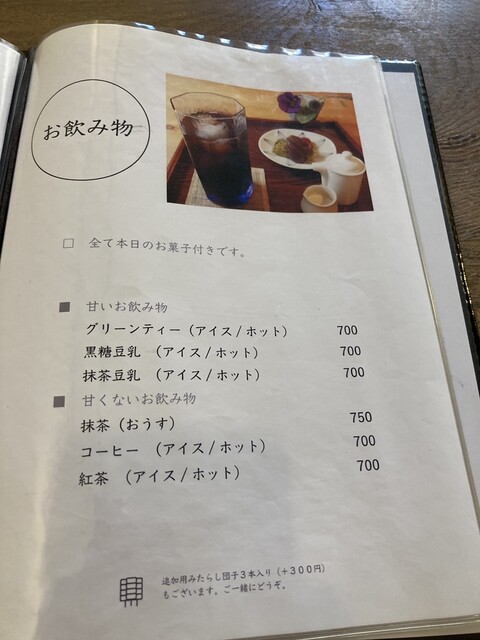 お飲み物
□ 全て本日のお菓子付きです。
■ 甘いお飲み物
グリーンティー（アイス/ホット） 700
黒糖豆乳 （アイス/ホット） 700
抹茶豆乳 （アイス/ホット） 700
■ 甘くないお飲み物
抹茶（おうす） 750
コーヒー （アイス/ホット） 700
紅茶 （アイス/ホット） 700
追加用みたらし団子３本入り（＋３００円）
もございます。ご一緒にどうぞ。